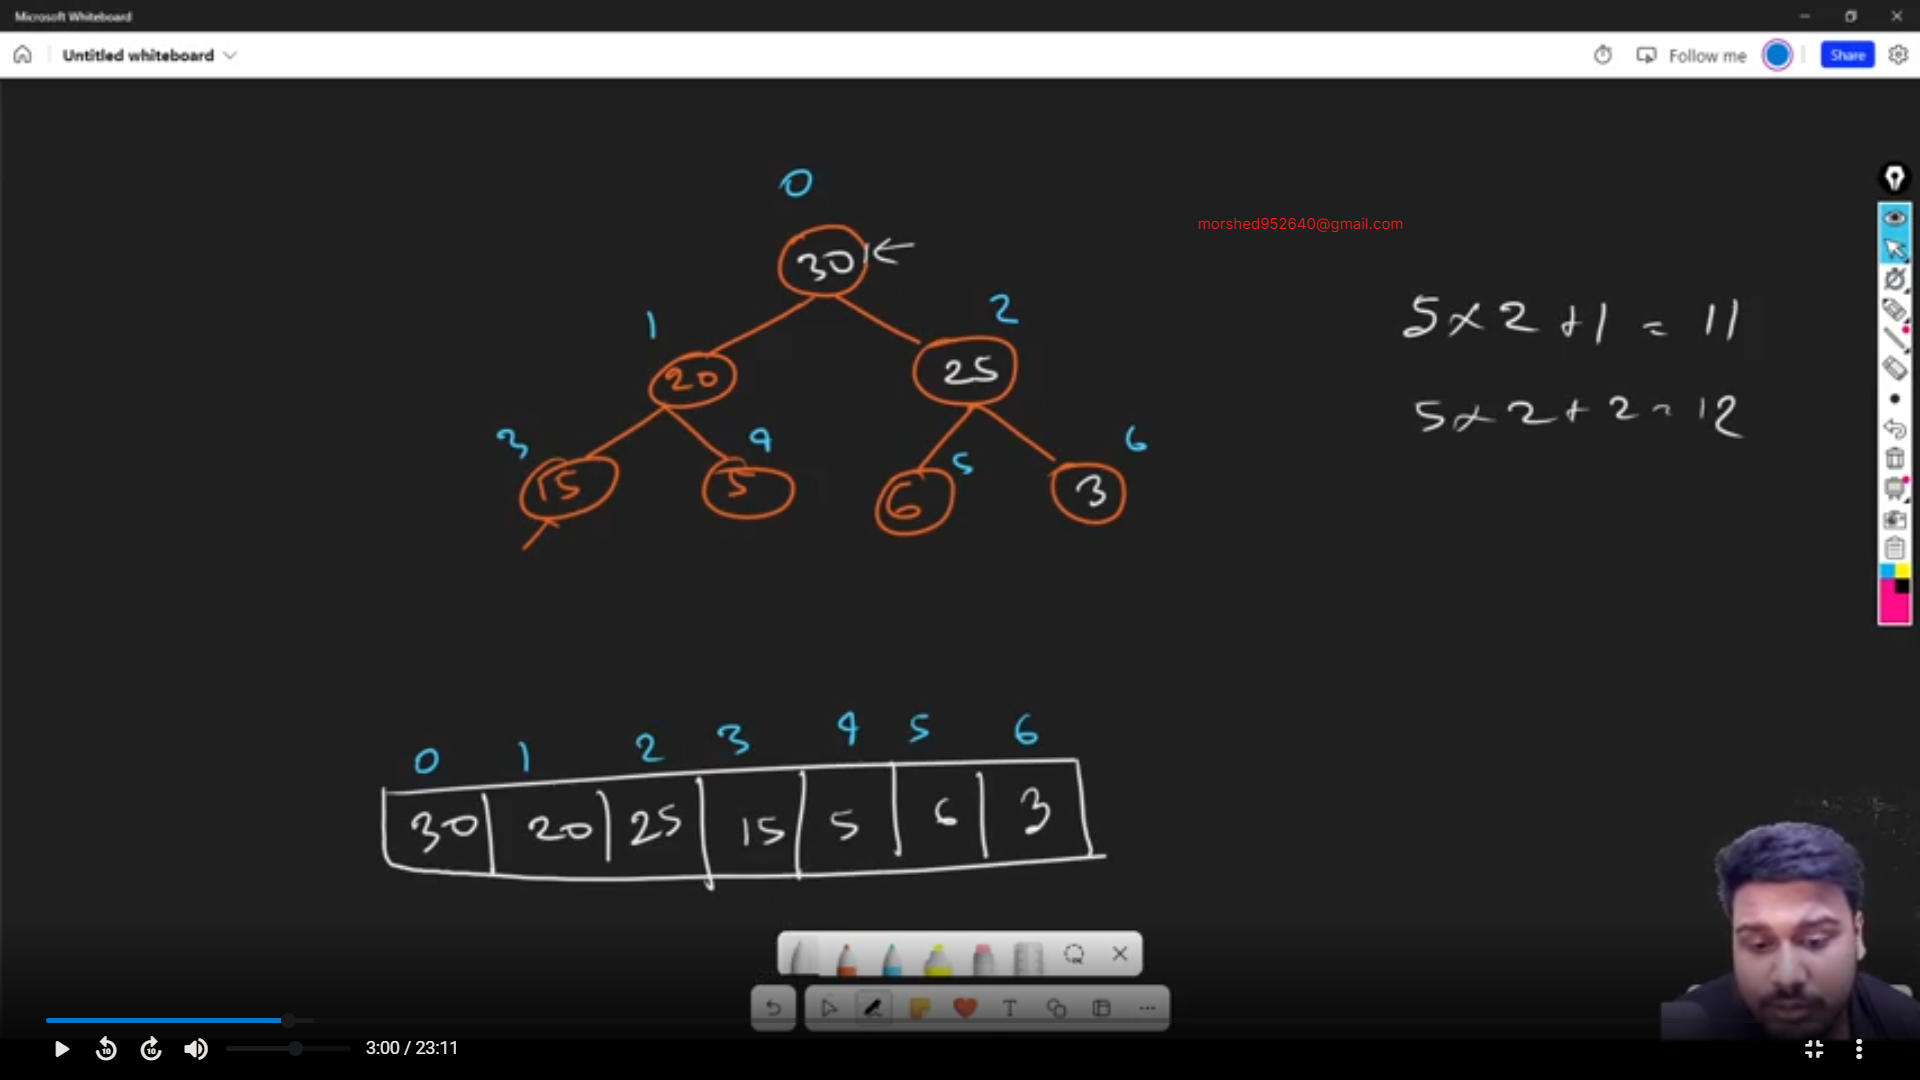 Microsoft Whiteboard
Untitled whiteboard
Follow me
Share
morshed952640@gmail.com
0
30
1
2
20
25
3
4
5
6
15
5
6
3
5 x 2 + 1 = 11
5 x 2 + 2 = 12
0 1 2 3 4 5 6
30 20 25 15 5 6 3
T
10
10
3:00 / 23:11